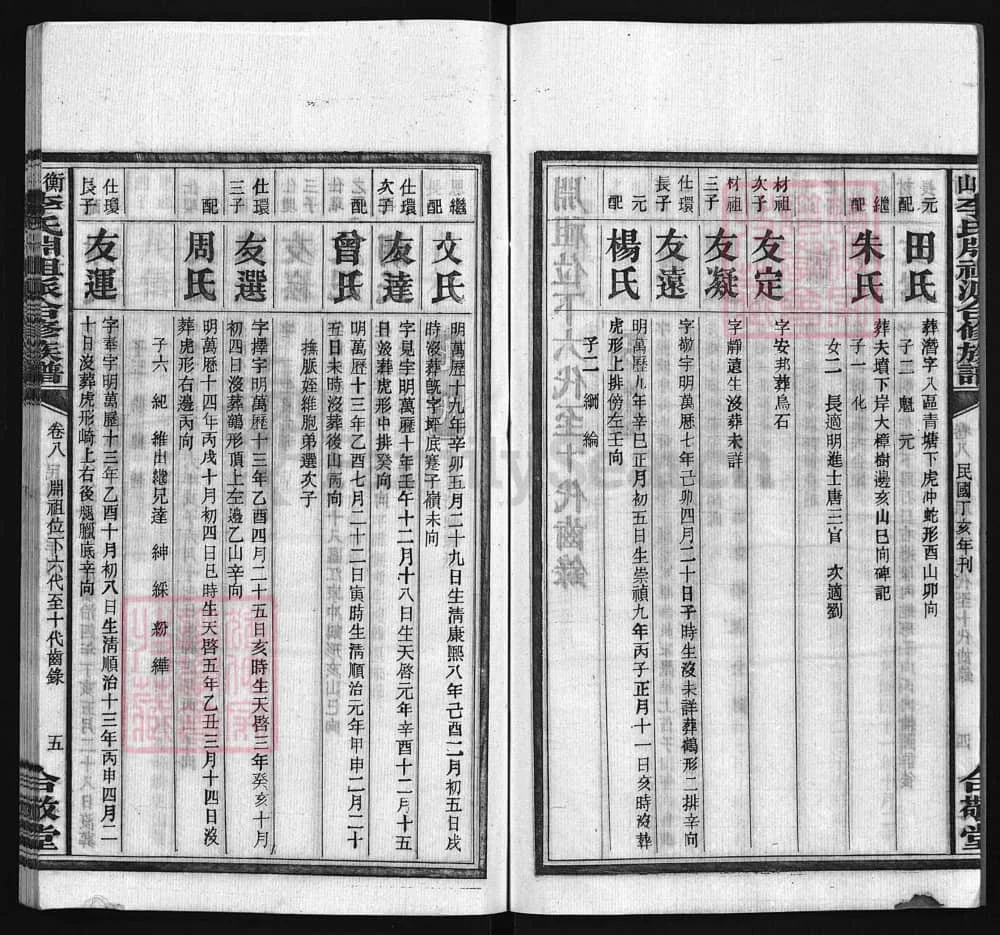 元配
田氏
葬潛字入區青塘下虎冲蛇形酉山卯向
子二 魁 元
繼配
朱氏
葬夫墳下岸大樟樹邊亥山巳向碑記
子一 化
女二 長適明進士唐三官 次適劉
材祖次子
友定
字安邦葬烏石
材祖三子
友凝
字靜遠生沒葬未詳
仕環長子
友遠
字敬宇明萬歷七年己卯四月二十日子時生沒未詳葬鶴形二排辛向
元配
楊氏
明萬歷九年辛巳正月初五日生崇禎九年丙子正月十一日亥時沒葬
虎形上排傍左壬向
子二 綱 綸
民國丁亥年刊
合敬堂
繼配
文氏
明萬歷十九年辛卯五月二十九日生淸康熙八年己酉二月初五日戌
時沒葬旣字坪底蹇子嶺未向
仕環次子
友達
字見宇明萬歷十年壬午十二月十八日生天啓元年辛酉十二月十五
日沒葬虎形中排癸向
之配
曾氏
明萬歷十三年乙酉七月二十二日寅時生淸順治元年甲申二月二十
五日未時沒葬後山丙向
撫脈姪維胞弟選次子
仕環三子
友選
字擇宇明萬歷十三年乙酉四月二十五日亥時生天啓三年癸亥十月
初四日沒葬鵝形頂上左邊乙山辛向
配
周氏
明萬歷十四年丙戌十月初四日巳時生天啓五年乙丑三月十四日沒
葬虎形右邊丙向
子六 紀 維出繼兄達 紳 綵 紛 繂
仕瓊長子
友運
字奉宇明萬歷十三年乙酉十月初八日生淸順治十三年丙申四月二
十日沒葬虎形崎上右後腿臘底辛向
衡李氏開祖派合修族譜
卷八 開祖位下六代至十代齒錄
五
合敬堂